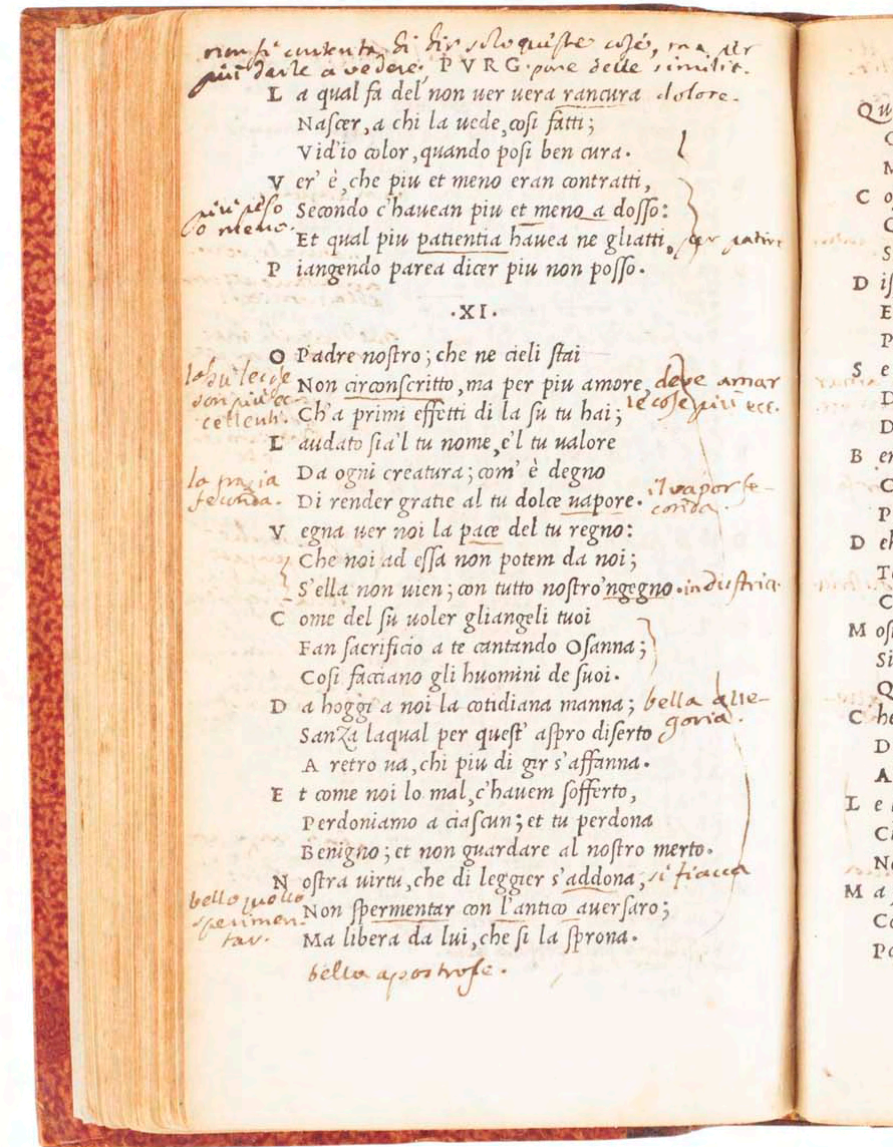 non si contenta di dir solo queste cose, ma per
più darle a vedere, PVRG. pone delle similit.
L a qual fa del non uer uera rancura dolore.
Nascer, a chi la uede, cosi fatti;
Vid'io color, quando posi ben cura.
V er' è, che piu et meno eran contratti,
più peso Secondo c'hauean piu et meno a dosso:
o meno. Et qual piu patientia hauea ne gliatti, per patire
P iangendo parea dicer piu non posso.
.XI.
O Padre nostro; che ne cieli stai
Non circonscritto, ma per piu amore, deve amar
son più ec- Ch'a primi effetti di la su tu hai; le cose più ecc.
cellenti. L audato sia'l tu nome, e'l tu ualore
Da ogni creatura; com' è degno
feconda. Di render gratie al tu dolce uapore. il vapor fe-
conda.
V egna uer noi la pace del tu regno:
Che noi ad essa non potem da noi;
S'ella non uien; con tutto nostro'ngegno. industria.
C ome del su uoler gliangeli tuoi
Fan sacrificio a te cantando Osanna;
Cosi facciano gli huomini de suoi.
D a hoggi a noi la cotidiana manna; bella alle-
Sanza laqual per quest' aspro diserto goria.
A retro ua, chi piu di gir s'affanna.
E t come noi lo mal, c'hauem sofferto,
Perdoniamo a ciascun; et tu perdona
Benigno; et non guardare al nostro merto.
N ostra uirtu, che di leggier s'addona, si fiacca
bello quello Non spermentar con l'antico auersaro;
sperimen- Ma libera da lui, che si la sprona.
tar.
bella apostrofe.
Qu
C
M
C o
C
S
D is
E
P
S e
D
D
B en
C
P
D eh
To
C
M os
Si
Q
C he
D
A
L e
Ch
No
M a
Co
Pa